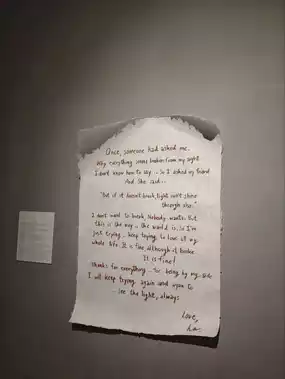 Once, someone had asked me.
Why everything seems broken from my sight
I don't know how to say... So I asked my friend
And she said...
"But if it doesn't break, light won't shine
through also."
I don't want to break, Nobody wants. But
this is the way the world is. So I'm
just trying. keep trying to love all my
whole life. It is fine, although it broke
It is fine!
thanks for everything for being by my side
I will keep trying again and open to
see the light, always
love,